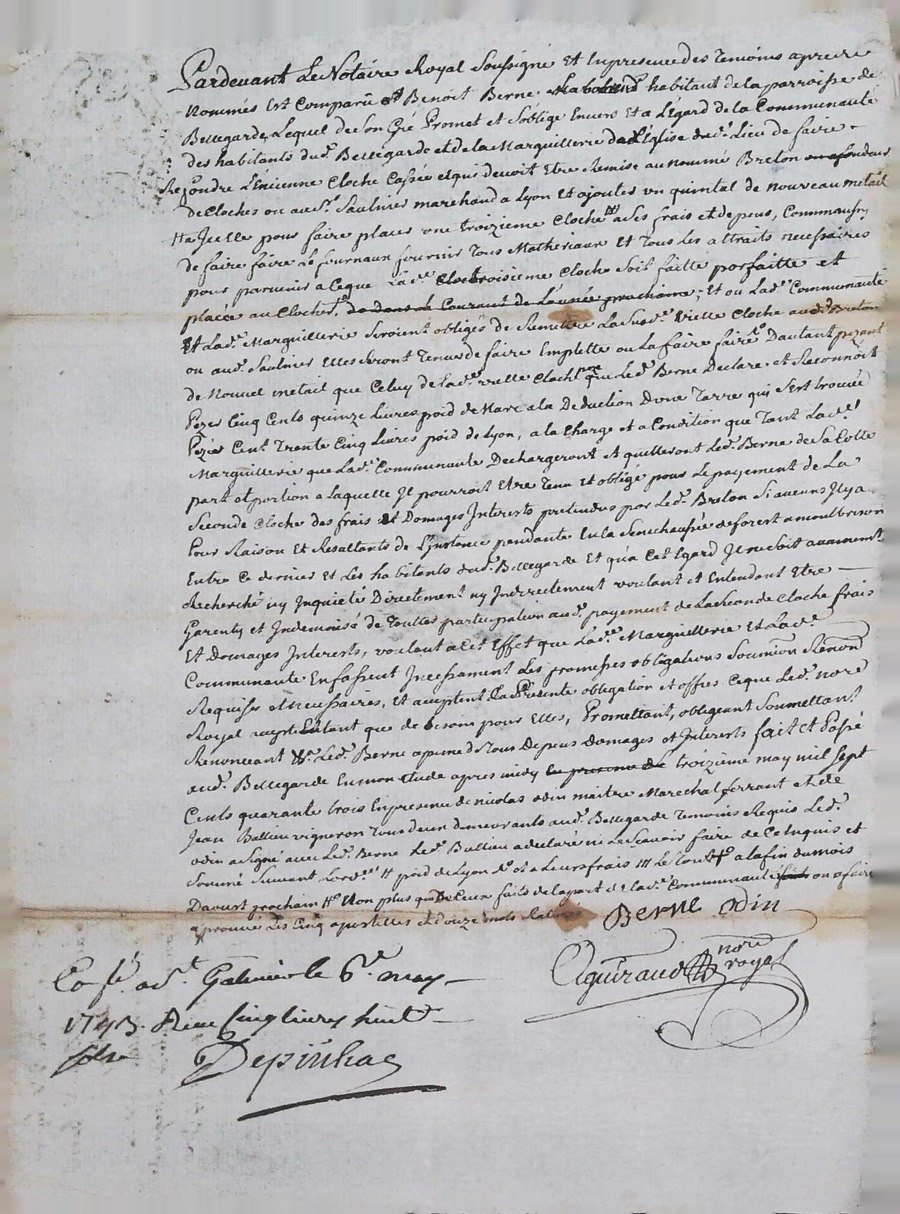 Pardevant Le Notaire Royal Soussigné Et Enpresence des Temoins apres
Nommés Est Comparu Benoit Berne habitant de la parroisse de
Bellegarde, Lequel de Son Gré Promet et S'oblige Envers Et a L'egard de la Communauté
des habitants dud.t Bellegarde et de la Marguillerie de L'Eglise dud.t Lieu de faire
Refondre L'encienne Cloche Cassée et qui devoit Etre Remise au nommé Breton fondeur
de Cloches ou au S.r Saulnier marchand a Lyon Et ajouter un quintal de nouveau metail
a Jcelle pour faire placer une troizieme Cloche a Ses frais et depens, Comme aussy
de faire faire Le fourneau fournir Tous Matheriaux Et Tous les attraits necessaires
pour parvenir a Ceque Lad.e troisieme Cloche Soit faitte parfaitte et
placée au Clocher, dans le Courant de L'année prochaine; Et ou Lad.e Communauté
Et Lad.e Marguillerie Seroient obligés de Remettre La Susd.e Vielle Cloche aud.t Breton
ou aud.t Saulnier Elles Seront Tenues de faire Emplette ou La faire faire D'autant pezant
de Nouveau metail que Celuy de Lad.e vielle Cloche que Led.t Berne Declare et Reconnoit
Pezer Cinq Cents quinze Livres poid de Marc a la Deduction D'une Tarre qui S'est trouvée
Pezer Cent Trente Cinq Livres poid de Lyon, a la Charge et a Condition que Tant Lad.e
Marguillerie que Lad.e Communauté Dechargeront et quitteront Led.t Berne de Sa Cotte
part et portion a laquelle Jl pourroit Etre Tenu Et obligé pour Le payement de La
Seconde Cloche des frais et Domages Interests pretendus par Led.t Breton Si aucuns Jl y a
Pour Raison Et Resultants de L'jnstance pendante En la Senechaussée de forest a montbrison
Entre Ce dernier Et Les habitants dud.t Bellegarde Et qu'a Cet Egard Jl ne Soit aucunement
Recherché ny Jnquieté Directement ny Jndirectement voulant et Entendant Etre
Garenty et Jndemnisé de Touttes participation aud.t payement de La Seconde Cloche frais
Et Domages Jnterests, voulant a Cet Effet que Lad.e Marguillerie Et Lad.e
Communauté En fassent Jncessament Les promesses obligations Soumission Renon
Requises et necessaires, Et acceptent La Presente obligation et offres Ceque Led.t no.re
Royal accepte Entant que de besoin pour Elles, Promettant, obligeant Soumettant
Renonceant Led.t Berne a peine de Tous Depens domages et Jnterests fait et Passé
aud.t Bellegarde En mon Etude apres midy troizième may mil Sept
Cents quarante trois En presence de nicolas odin maitre Marechal ferrant et de
Jean Ballieu vigneron Tous deux demeurants aud.t Bellegarde Temoins Requis Led.t
odin a Signé avec Led.t Berne Led.t Ballieu a declaré ne Le Scavoir faire de Ce Enquis et
Sommé Suivant L'ord.ce poid de Lyon et a Leurs frais Le tout a la fin du mois
D'aoust prochain non plus que de Ceux faits de la part de lad.e Communauté ou a faire
aprouvé Les Cinq apostilles et douze mots Rayés
Berne odin
Aguiraud no.re royal
Co.lé a S.t Galmier le 6.e may
1743. Reçu Cinq livres huit
sols
Depinhac